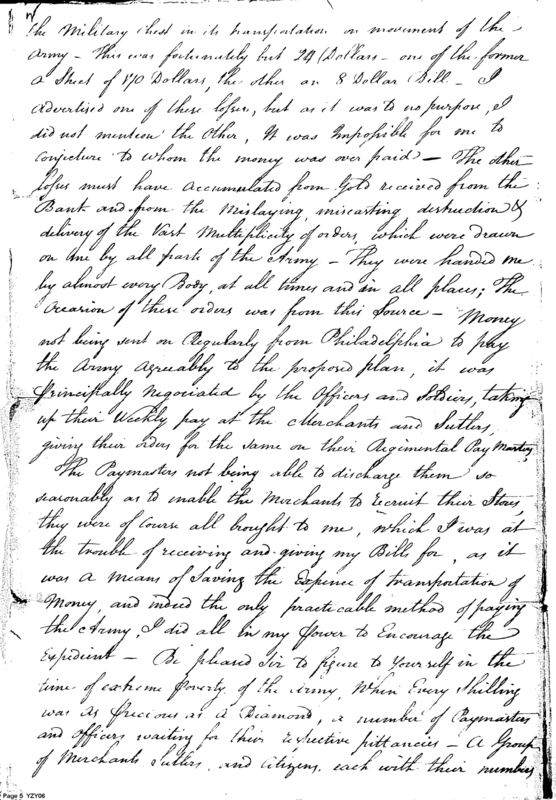 the Military Chest in its transportation on movement of the
Army – This was fortunately but 24 Dollars – one of the former
a Sheet of 170 Dollars, the other an 8 Dollar Bill – I
advertised one of these losses, but as it was to no purpose, I
did not mention the Other, It was Impossible for me to
conjecture to whom the money was over paid – The other
losses must have accumulated from Gold received from the
Bank and from the Mislaying, miscasting, destruction &
delivery of the Vast Multiplicity of orders, which were drawn
on me by all parts of the Army – They were handed me
by almost every Body, at all times and in all places; The
Occasion of these orders was from this Source – Money
not being sent on Regularly from Philadelphia to pay
the Army agreeably to the proposed plan, it was
principally Negociated by the Officers and Soldiers, taking
up their Weekly pay at the Merchants and Sutlers,
giving their orders for the same on their Regimental Pay Masters,
The Paymasters not being able to discharge them so
seasonably as to enable the Merchants to recruit their Stores,
they were of course all brought to me, which I was at
the trouble of receiving and giving my Bills for, as it
was a means of Saving the Expence of transportation of
Money, and indeed the only practicable method of paying
the Army, I did all in my Power to Encourage the
Expedient – Be pleased Sir to figure to Yourself in the
time of extreme Poverty of the Army, When Every Shilling
was as Precious as a Diamond, a number of Paymasters
and Officers waiting for their respective pittancies – A Group
of Merchants, Sutlers, and Citizens, each with their numbers
Page 5 YZY06